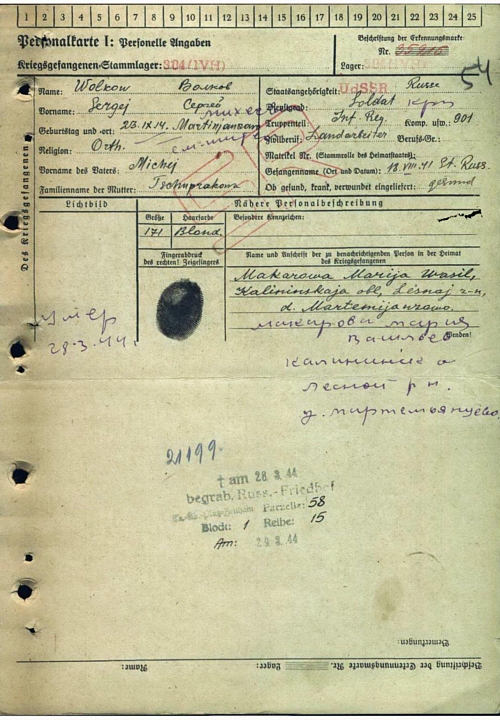 1 2 3 4 5 6 7 8 9 10 11 12 13 14 15 16 17 18 19 20 21 22 23 24 25
Personalkarte I: Personelle Angaben
Beschriftung der Erkennungsmarke
Nr.
Kriegsgefangenen-Stammlager: 384(IVH)
Lager:
54
Des Kriegsgefangenen
Name: Wolkow Волков
Staatsangehörigkeit: UdSSR Russe
Vorname: Sergej Сергей
Dienstgrad: Soldat
Geburtstag und -ort: 23.IX.14. Martinjanzow
Truppenteil: Inf Reg. Komp. usw.: 901
Religion: Orth.
Zivilberuf: Landarbeiter Berufs-Gr.:
Matrikel Nr. (Stammrolle des Heimatstaates):
Vorname des Vaters: Michej
Gefangennahme (Ort und Datum): 18.VIII.41 St. Russ.
Familienname der Mutter: Tschuprakowa
Ob gesund, krank, verwundet eingeliefert: gesund
Lichtbild
Nähere Personalbeschreibung
Größe Haarfarbe Besondere Kennzeichen:
171 Blond.
Fingerabdruck
des rechten! Zeigefingers
Name und Anschrift der zu benachrichtigenden Person in der Heimat
des Kriegsgefangenen
Makarowa Marija Wasil,
Kalininskaja obl. Lesnoj r-n,
d. Martemijanzowo.
Умер
28.3.44г.
Макарова Мария
Wenden!
Калининск о
Лесной р н.
21199.
† am 28 3. 44
begrab. Russ.-Friedhof
Parzelle: 58
Block: 1 Reihe: 15
Am: 29 3. 44
Bemerkungen:
Beschriftung der Erkennungsmarke Nr. Lager: Name: